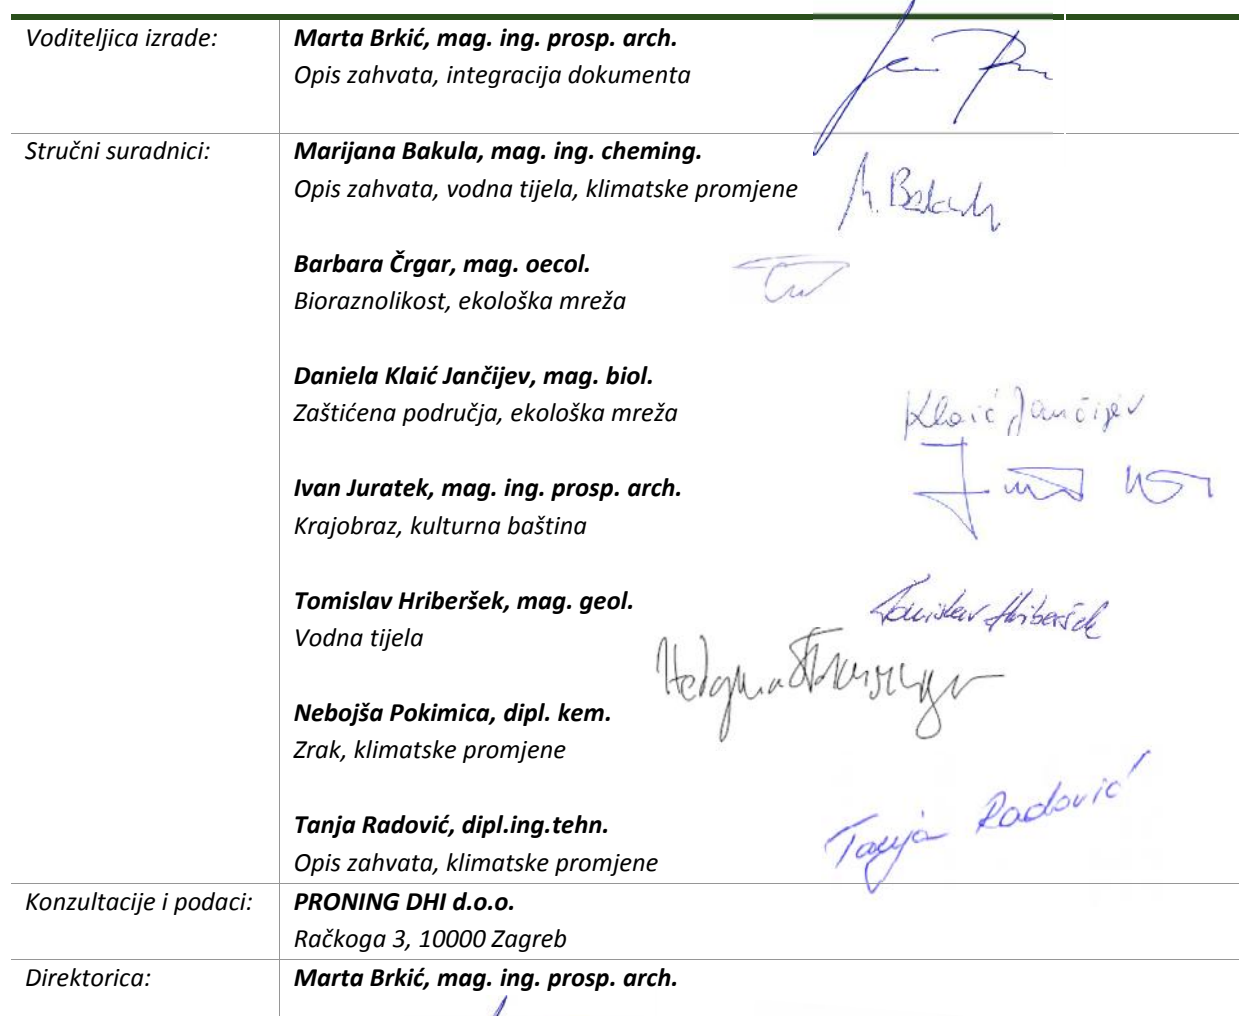 Voditeljica izrade:
Marta Brkić, mag. ing. prosp. arch.
Opis zahvata, integracija dokumenta
Stručni suradnici:
Marijana Bakula, mag. ing. cheming.
Opis zahvata, vodna tijela, klimatske promjene
M. Bakula
Barbara Črgar, mag. oecol.
Bioraznolikost, ekološka mreža
Daniela Klaić Jančijev, mag. biol.
Zaštićena područja, ekološka mreža
Klaić Jančijev
Ivan Juratek, mag. ing. prosp. arch.
Krajobraz, kulturna baština
Tomislav Hriberšek, mag. geol.
Vodna tijela
Tomislav Hriberšek
Nebojša Pokimica, dipl. kem.
Zrak, klimatske promjene
Tanja Radović, dipl.ing.tehn.
Opis zahvata, klimatske promjene
Tanja Radović
Konzultacije i podaci:
PRONING DHI d.o.o.
Račkoga 3, 10000 Zagreb
Direktorica:
Marta Brkić, mag. ing. prosp. arch.